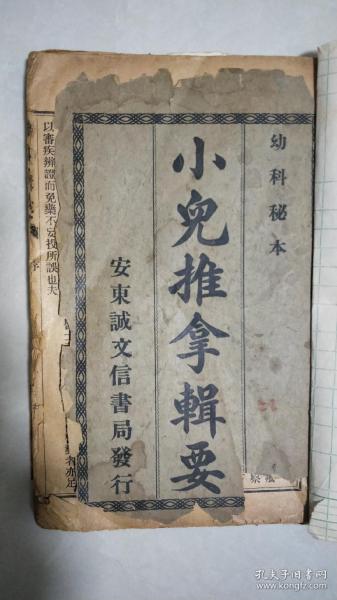 幼科秘本
小兒推拿輯要
安東誠文信書局發行
以審疾辨證而免藥不妄投所誤也夫
序
孔夫子旧书网